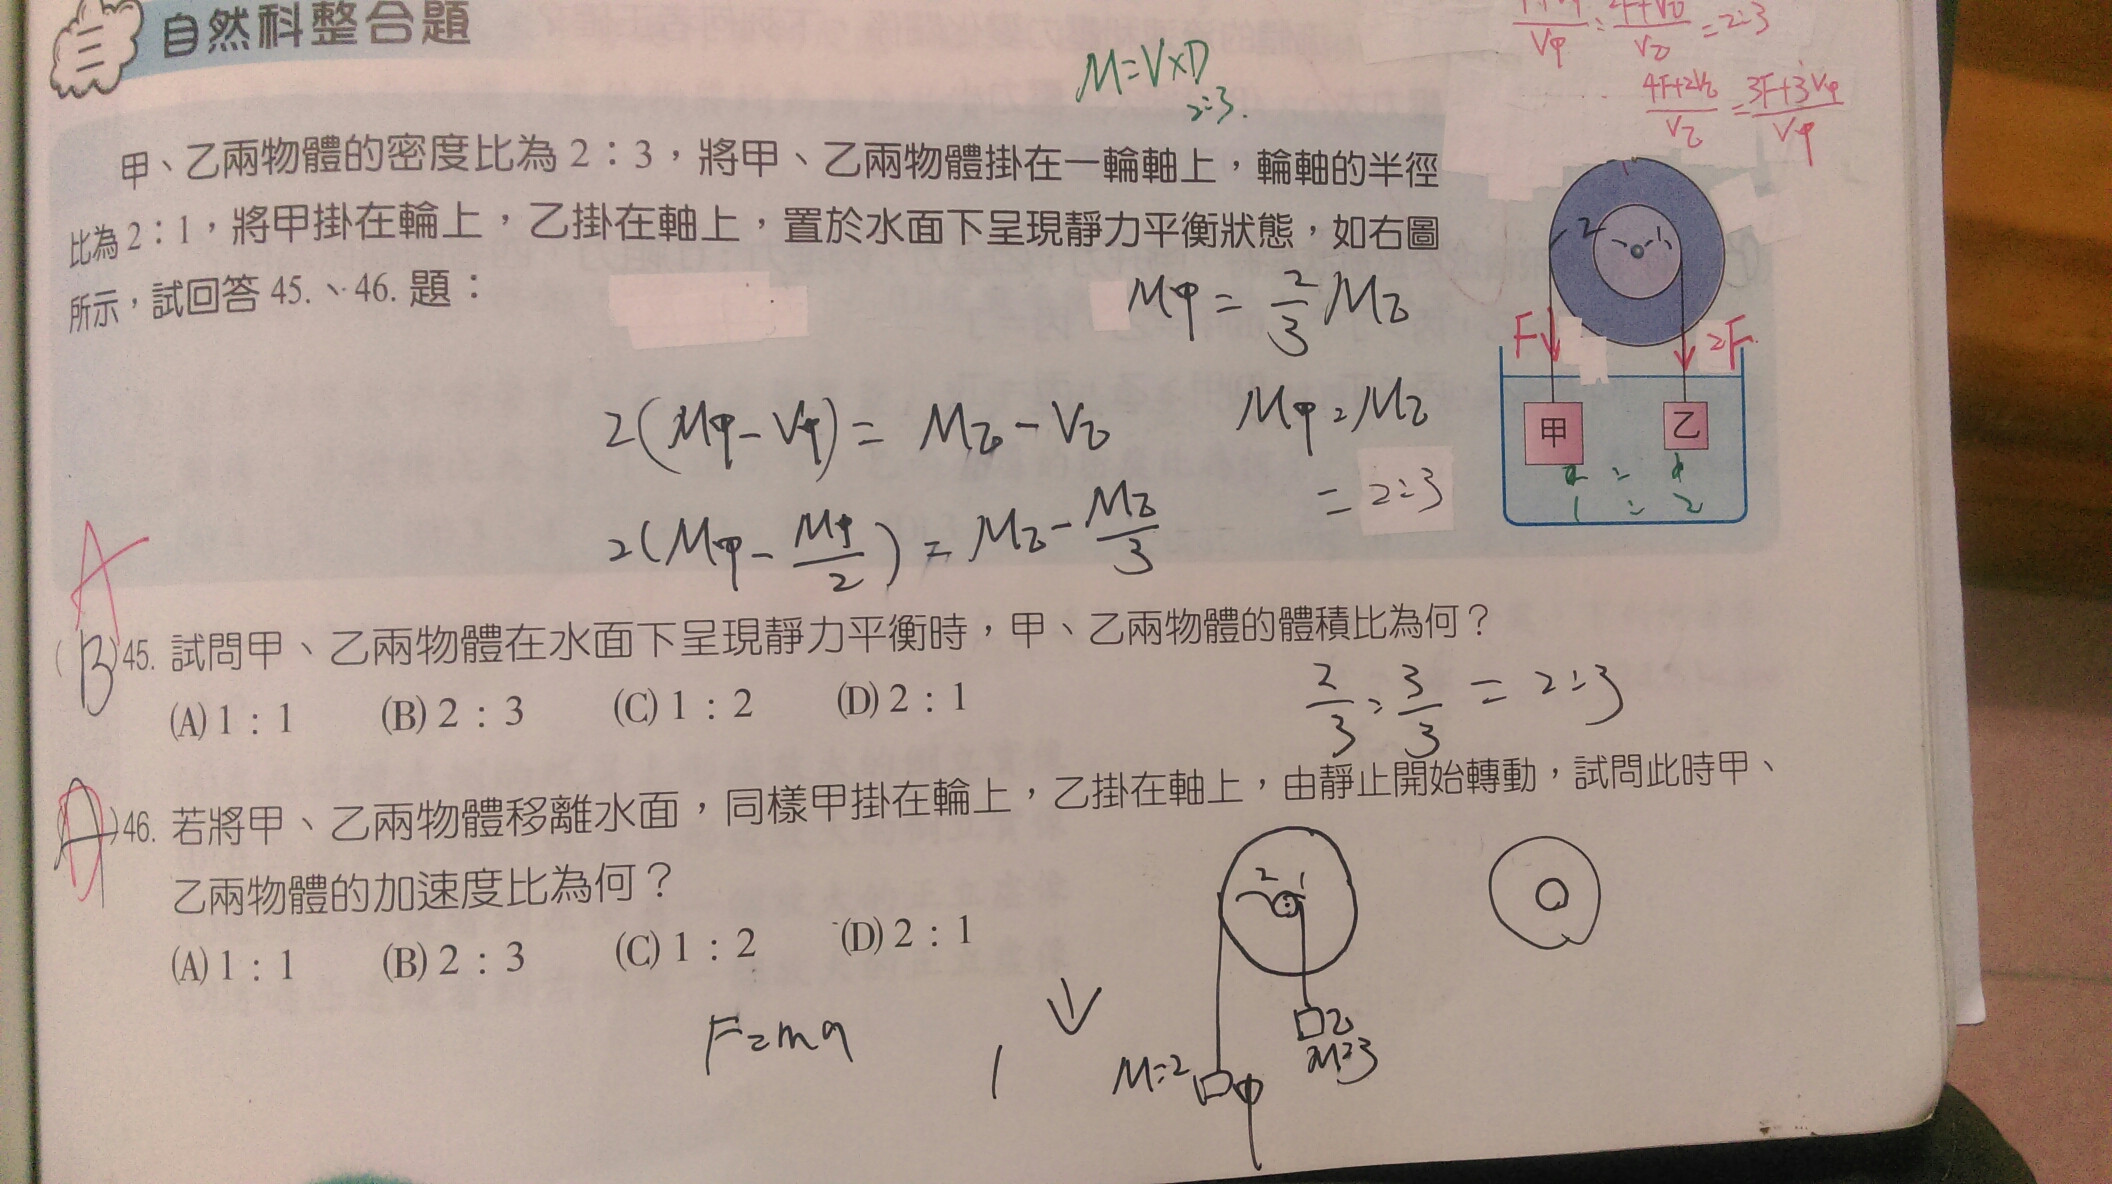 三
自然科整合題
M=V×D
2:3.
=2:3
4F+2V乙/V乙=3F+3V甲/V甲
甲、乙兩物體的密度比為 2:3,將甲、乙兩物體掛在一輪軸上,輪軸的半徑
比為 2:1,將甲掛在輪上,乙掛在軸上,置於水面下呈現靜力平衡狀態,如右圖
所示,試回答 45.、46. 題:
2 1
F 2F
甲 乙
1 : 2
M甲=2/3M乙
M甲:M乙
=2:3
2(M甲-V甲)=M乙-V乙
2(M甲-M甲/2)=M乙-M乙/3
A
(B)45. 試問甲、乙兩物體在水面下呈現靜力平衡時,甲、乙兩物體的體積比為何?
(A) 1:1 (B) 2:3 (C) 1:2 (D) 2:1
2/3:3/3=2:3
46. 若將甲、乙兩物體移離水面,同樣甲掛在輪上,乙掛在軸上,由靜止開始轉動,試問此時甲、
乙兩物體的加速度比為何?
(A) 1:1 (B) 2:3 (C) 1:2 (D) 2:1
F=ma
2 1
乙
M=3
M=2
甲